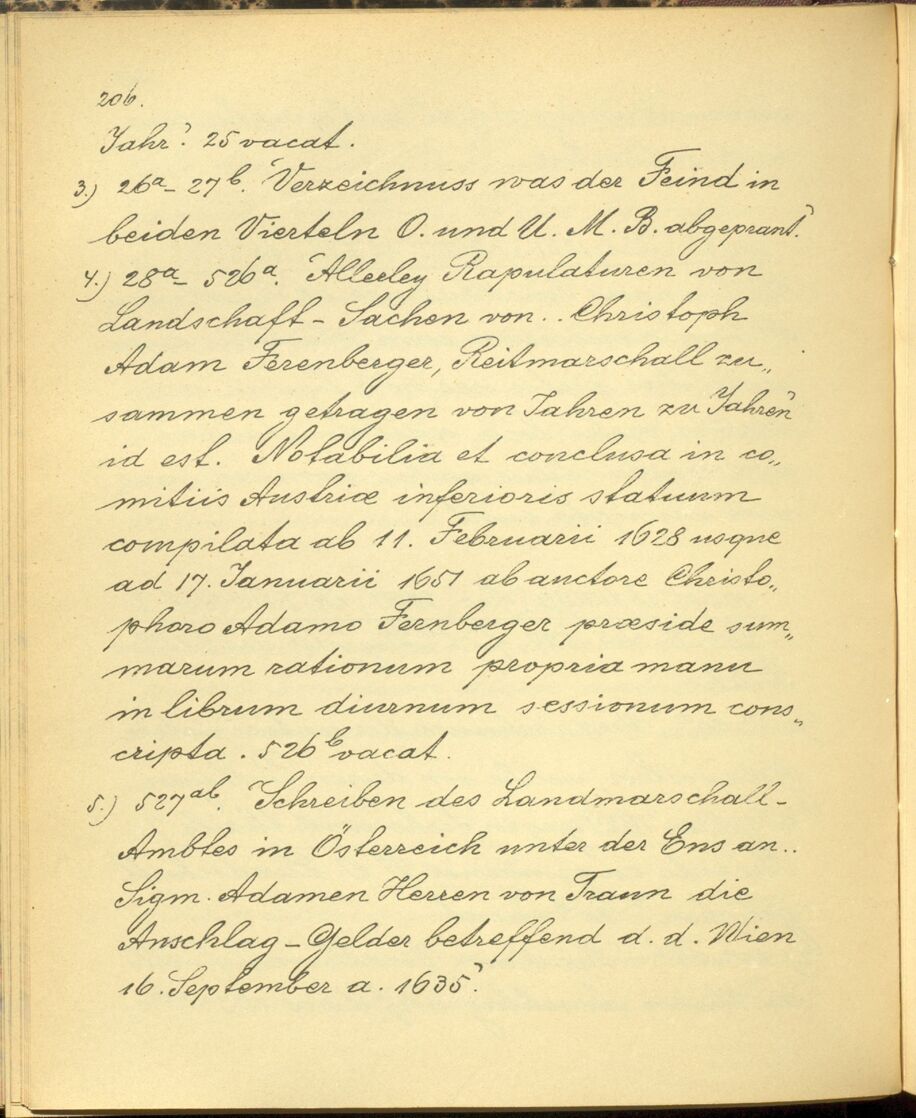 206.
Jahr'. 25 vacat.
3.) 26a - 27b. 'Verzeichnuss was der Feind in
beiden Vierteln O. und U. M. B. abgeprant.'
4.) 28a - 526a. 'Allerley Rapulaturen von
Landschaft - Sachen von.. Christoph
Adam Ferenberger, Reitmarschall zu„
sammen getragen von Jahren zu Jahren'
id est. Notabilia et conclusa in co„
mitiis Austriæ inferioris statuum
compilata ab 11. Februarii 1628 usque
ad 17. Januarii 1651 ab auctore Christo„
phoro Adamo Fernberger præside sum„
marum rationum propria manu
in librum diurnum sessionum cons„
cripta. 526b vacat.
5.) 527ab. 'Schreiben des Landmarschall-
Ambtes in Österreich unter der Ens an..
Sigm. Adamen Herren von Traun die
Anschlag - Gelder betreffend d. d. Wien
16. September a. 1635'.